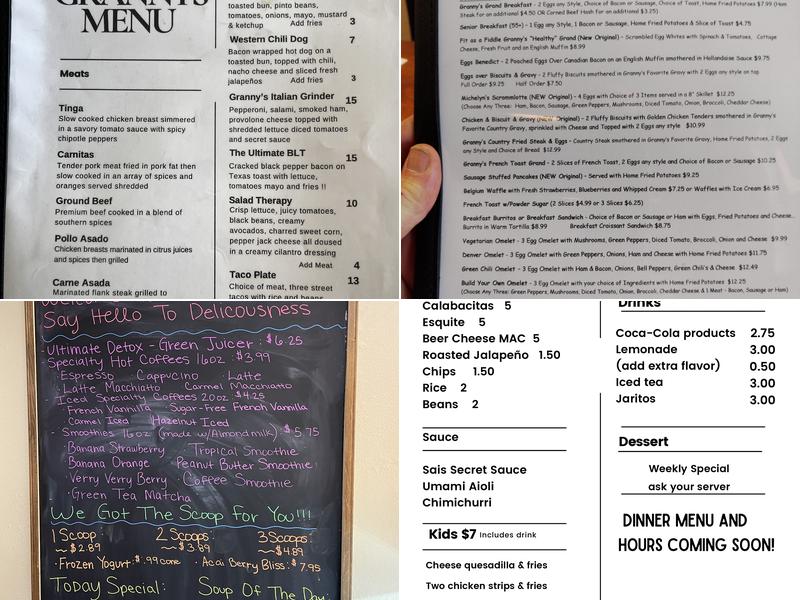 GRANNYS
MENU
Meats
Tinga
Slow cooked chicken breast simmered
in a savory tomato sauce with spicy
chipotle peppers
Carnitas
Tender pork meat fried in pork fat then
slow cooked in an array of spices and
oranges served shredded
Ground Beef
Premium beef cooked in a blend of
southern spices
Pollo Asado
Chicken breasts marinated in citrus juices
and spices then grilled
Carne Asada
Marinated flank steak grilled to
toasted bun, pinto beans,
tomatoes, onions, mayo, mustard
& ketchup Add fries 3
Western Chili Dog 7
Bacon wrapped hot dog on a
toasted bun, topped with chili,
nacho cheese and sliced fresh
jalapeños Add fries 3
Granny's Italian Grinder 15
Pepperoni, salami, smoked ham,
provolone cheese topped with
shredded lettuce diced tomatoes
and secret sauce
The Ultimate BLT 15
Cracked black pepper bacon on
Texas toast with lettuce,
tomatoes mayo and fries !!
Salad Therapy 10
Crisp lettuce, juicy tomatoes,
black beans, creamy
avocados, charred sweet corn,
pepper jack cheese all doused
in a creamy cilantro dressing
Add Meat 4
Taco Plate 13
Choice of meat, three street
tacos with rice and beans
Granny's Grand Breakfast - 2 Eggs any Style, Choice of Bacon or Sausage, Choice of Toast, Home Fried Potatoes $7.99 (Ham
Steak for an additional $4.50 OR Corned Beef Hash for an additional $3.25)
Senior Breakfast (55+) - 1 Egg any Style, 1 Bacon or Sausage, Home Fried Potatoes & Slice of Toast $4.75
Fit as a Fiddle Granny's "Healthy" Grand (New Original) - Scrambled Egg Whites with Spinach & Tomatoes, Cottage
Cheese, Fresh Fruit and an English Muffin $8.99
Eggs Benedict - 2 Poached Eggs Over Canadian Bacon on an English Muffin smothered in Hollandaise Sauce $9.75
Eggs over Biscuits & Gravy - 2 Fluffy Biscuits smothered in Granny's Favorite Gravy with 2 Eggs any style on top
Full Order $9.25 Half Order $7.50
Michelyn's Scrommlotte (NEW Original) - 4 Eggs with Choice of 3 Items served in a 8" Skillet $12.25
(Choose Any Three: Ham, Bacon, Sausage, Green Peppers, Mushrooms, Diced Tomato, Onion, Broccoli, Cheddar Cheese)
Chicken & Biscuit & Gravy (New Original) - 2 Fluffy Biscuits with Golden Chicken Tenders smothered in Granny's
Favorite Country Gravy, sprinkled with Cheese and Topped with 2 Eggs any style $10.99
Granny's Country Fried Steak & Eggs - Country Steak smothered in Granny's Favorite Gravy, Home Fried Potatoes, 2 Eggs
any Style and Choice of Bread $12.99
Granny's French Toast Grand - 2 Slices of French Toast, 2 Eggs any style and Choice of Bacon or Sausage $10.25
Sausage Stuffed Pancakes (NEW Original) - Served with Home Fried Potatoes $9.25
Belgium Waffle with Fresh Strawberries, Blueberries and Whipped Cream $7.25 or Waffles with Ice Cream $6.95
French Toast w/Powder Sugar (2 Slices $4.99 or 3 Slices $6.25)
Breakfast Burritos or Breakfast Sandwich - Choice of Bacon or Sausage or Ham with Eggs, Fried Potatoes and Cheese
Burrito in Warm Tortilla $8.99 Breakfast Croissant Sandwich $8.75
Vegetarian Omelet - 3 Egg Omelet with Mushrooms, Green Peppers, Diced Tomato, Broccoli, Onion and Cheese $9.99
Denver Omelet - 3 Egg Omelet with Green Peppers, Onions, Ham and Cheese with Home Fried Potatoes $11.75
Green Chili Omelet - 3 Egg Omelet with Ham & Bacon, Onions, Bell Peppers, Green Chili's & Cheese. $12.49
Build Your Own Omelet - 3 Egg Omelet with your choice of Ingredients with Home Fried Potatoes $12.25
(Choose Any Three: Green Peppers, Mushrooms, Diced Tomato, Onion, Broccoli, Cheddar Cheese & 1 Meat - Bacon, Sausage or Ham)
Say Hello To Delicousness
Ultimate Detox - Green Juicer : $6.25
- Specialty Hot Coffees 16oz : $3.99
· Espresso · Cappucino · Latte
· Latte Macchiato · Carmel Macchiatto
- Iced Specialty Coffees 20oz : $4.25
· French Vannilla · Sugar-Free French Vannilla
· Carmel Iced · Hazelnut Iced
- Smoothies 16oz (made w/Almond milk) : $5.75
· Banana Strawberry · Tropical Smoothie
· Banana Orange · Peanut Butter Smoothie
· Verry Verry Berry · Coffee Smoothie
· Green Tea Matcha
We Got The Scoop For You!!!
1 Scoop: 2 Scoops: 3 Scoops:
~$2.89 ~$3.89 ~$4.89
· Frozen Yogurt: $.99 cone · Acai Berry Bliss: $7.95
Today Special: Soup Of The Day:
Calabacitas 5
Esquite 5
Beer Cheese MAC 5
Roasted Jalapeño 1.50
Chips 1.50
Rice 2
Beans 2
Sauce
Sais Secret Sauce
Umami Aioli
Chimichurri
Kids $7 Includes drink
Cheese quesadilla & fries
Two chicken strips & fries
Drinks
Coca-Cola products 2.75
Lemonade 3.00
(add extra flavor) 0.50
Iced tea 3.00
Jaritos 3.00
Dessert
Weekly Special
ask your server
DINNER MENU AND
HOURS COMING SOON!